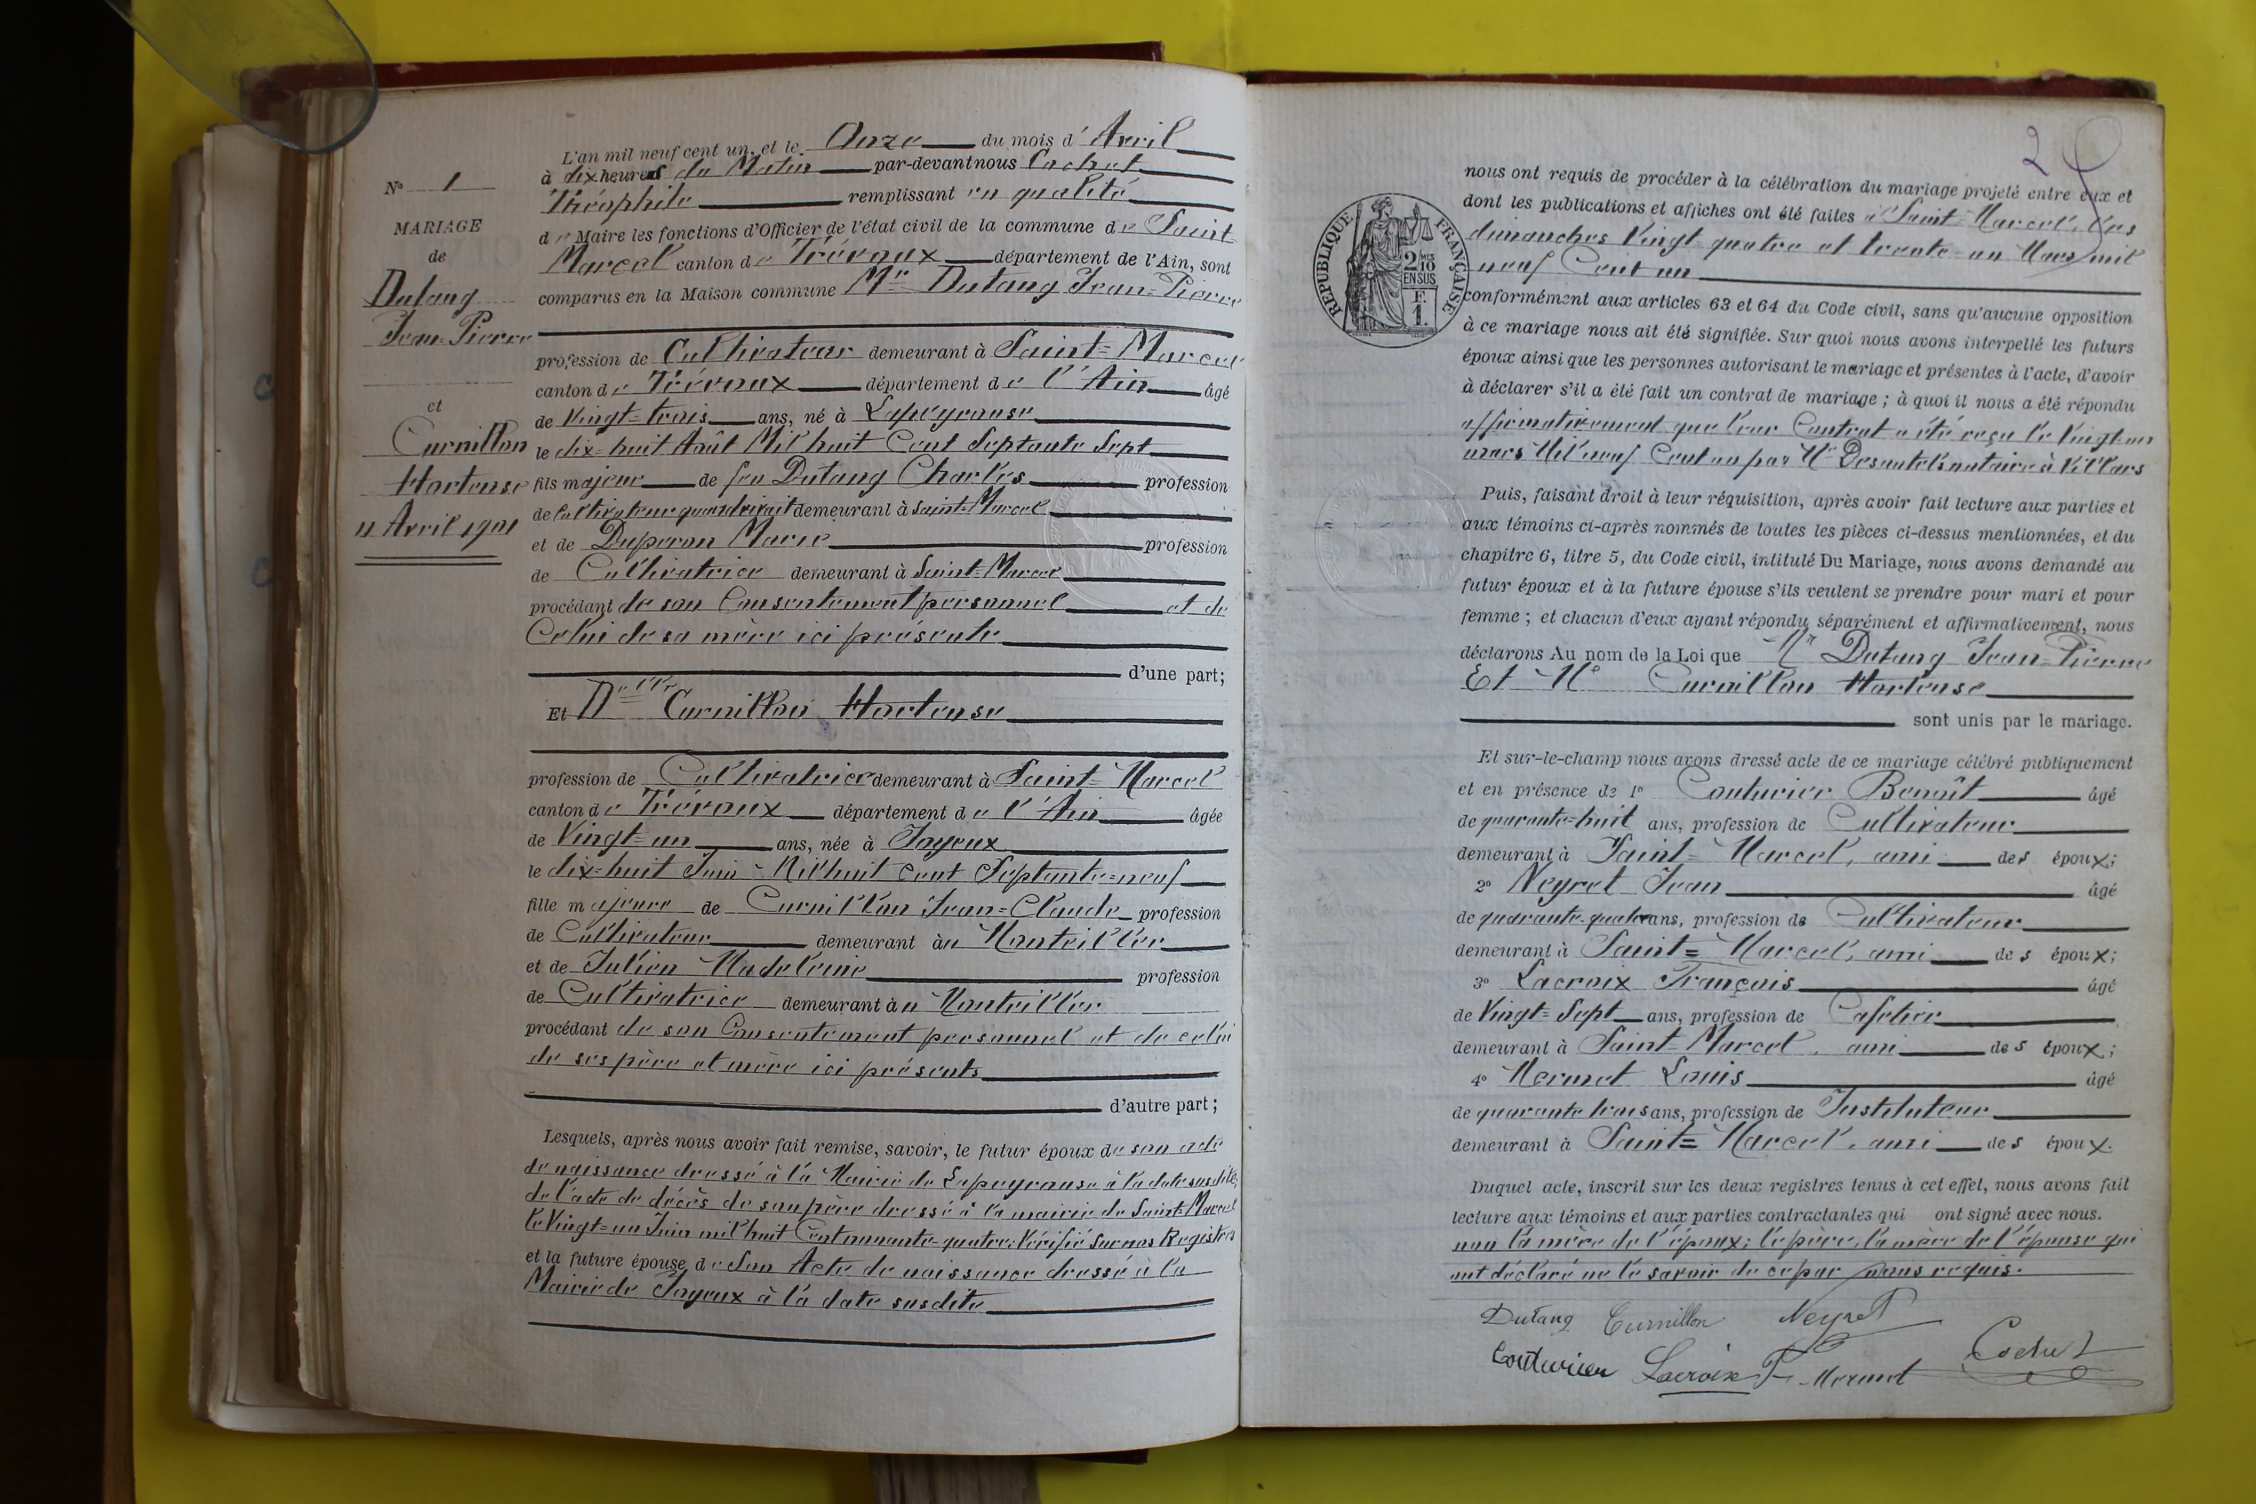 N° 1
MARIAGE
de
Dutang
Jean-Pierre
et
Curnillon
Hortense
11 Avril 1901
L'an mil neuf cent un et le Onze du mois d'Avril
à dix heures du Matin par-devant nous Cochet
Théophile remplissant en qualité
de Maire les fonctions d'Officier de l'état civil de la commune de Saint
Marcel canton de Trévoux département de l'Ain, sont
comparus en la Maison commune Mr Dutang Jean=Pierre
profession de Cultivateur demeurant à Saint=Marcel
canton de Trévoux département de l'Ain âgé
de Vingt=trois ans, né à Lapeyrouse
le dix=huit Août Mil huit Cent Septante Sept
fils majeur de feu Dutang Charles profession
de Cultivateur quand vivait demeurant à Saint=Marcel
et de Duperon Marie profession
de Cultivatrice demeurant à Saint=Marcel
procédant de son Consentement personnel et de
Celui de sa mère ici présente
d'une part;
Et Delle Curnillon Hortense
profession de Cultivatrice demeurant à Saint=Marcel
canton de Trévoux département de l'Ain âgée
de Vingt=un ans, née à Joyeux
le dix=huit Juin Mil huit cent Septante=neuf
fille majeure de Curnillon Jean=Claude profession
de Cultivateur demeurant au Montellier
et de Julien Madeleine profession
de Cultivatrice demeurant au Montellier
procédant de son Consentement personnel et de celui
de ses père et mère ici présents
d'autre part;
Lesquels, après nous avoir fait remise, savoir, le futur époux de son acte
de naissance dressé à la Mairie de Lapeyrouse à la date susdite,
de l'acte de décès de son père dressé à la mairie de Saint=Marcel
le Vingt=un Juin mil huit Cent nonante-quatre; Vérifié sur nos Registres
et la future épouse de Son Acte de naissance dressé à la
Mairie de Joyeux à la date susdite
2
RÉPUBLIQUE FRANÇAISE
2 MES
10
EN SUS
F.
1.
nous ont requis de procéder à la célébration du mariage projeté entre eux et
dont les publications et affiches ont été faites à Saint=Marcel, les
dimanches Vingt-quatre et trente-un Mars mil
neuf Cent un
conformément aux articles 63 et 64 du Code civil, sans qu'aucune opposition
à ce mariage nous ait été signifiée. Sur quoi nous avons interpellé les futurs
époux ainsi que les personnes autorisant le mariage et présentes à l'acte, d'avoir
à déclarer s'il a été fait un contrat de mariage; à quoi il nous a été répondu
affirmativement que leur Contrat a été reçu le Vingt=un
mars Mil neuf Cent un par Me Desautels notaire à Villars
Puis, faisant droit à leur réquisition, après avoir fait lecture aux parties et
aux témoins ci-après nommés de toutes les pièces ci-dessus mentionnées, et du
chapitre 6, titre 5, du Code civil, intitulé Du Mariage, nous avons demandé au
futur époux et à la future épouse s'ils veulent se prendre pour mari et pour
femme; et chacun d'eux ayant répondu séparément et affirmativement, nous
déclarons Au nom de la Loi que Mr Dutang Jean=Pierre
Et Mle Curnillon Hortense
sont unis par le mariage.
Et sur-le-champ nous avons dressé acte de ce mariage célébré publiquement
et en présence de 1° Couturier Benoît âgé
de quarante=huit ans, profession de Cultivateur
demeurant à Saint=Marcel, ami des époux;
2° Neyret Jean âgé
de quarante-quatre ans, profession de Cultivateur
demeurant à Saint=Marcel, ami des époux;
3° Lacroix François âgé
de Vingt=Sept ans, profession de Cafetier
demeurant à Saint=Marcel, ami des époux;
4° Mermet Louis âgé
de quarante trois ans, profession de Instituteur
demeurant à Saint=Marcel, ami des époux.
Duquel acte, inscrit sur les deux registres tenus à cet effet, nous avons fait
lecture aux témoins et aux parties contractantes qui ont signé avec nous.
non la mère de l'époux; le père, la mère de l'épouse qui
ont déclaré ne le savoir de ce par nous requis.
Dutang Curnillon Neyret
Couturier Lacroix F Mermet Cochet